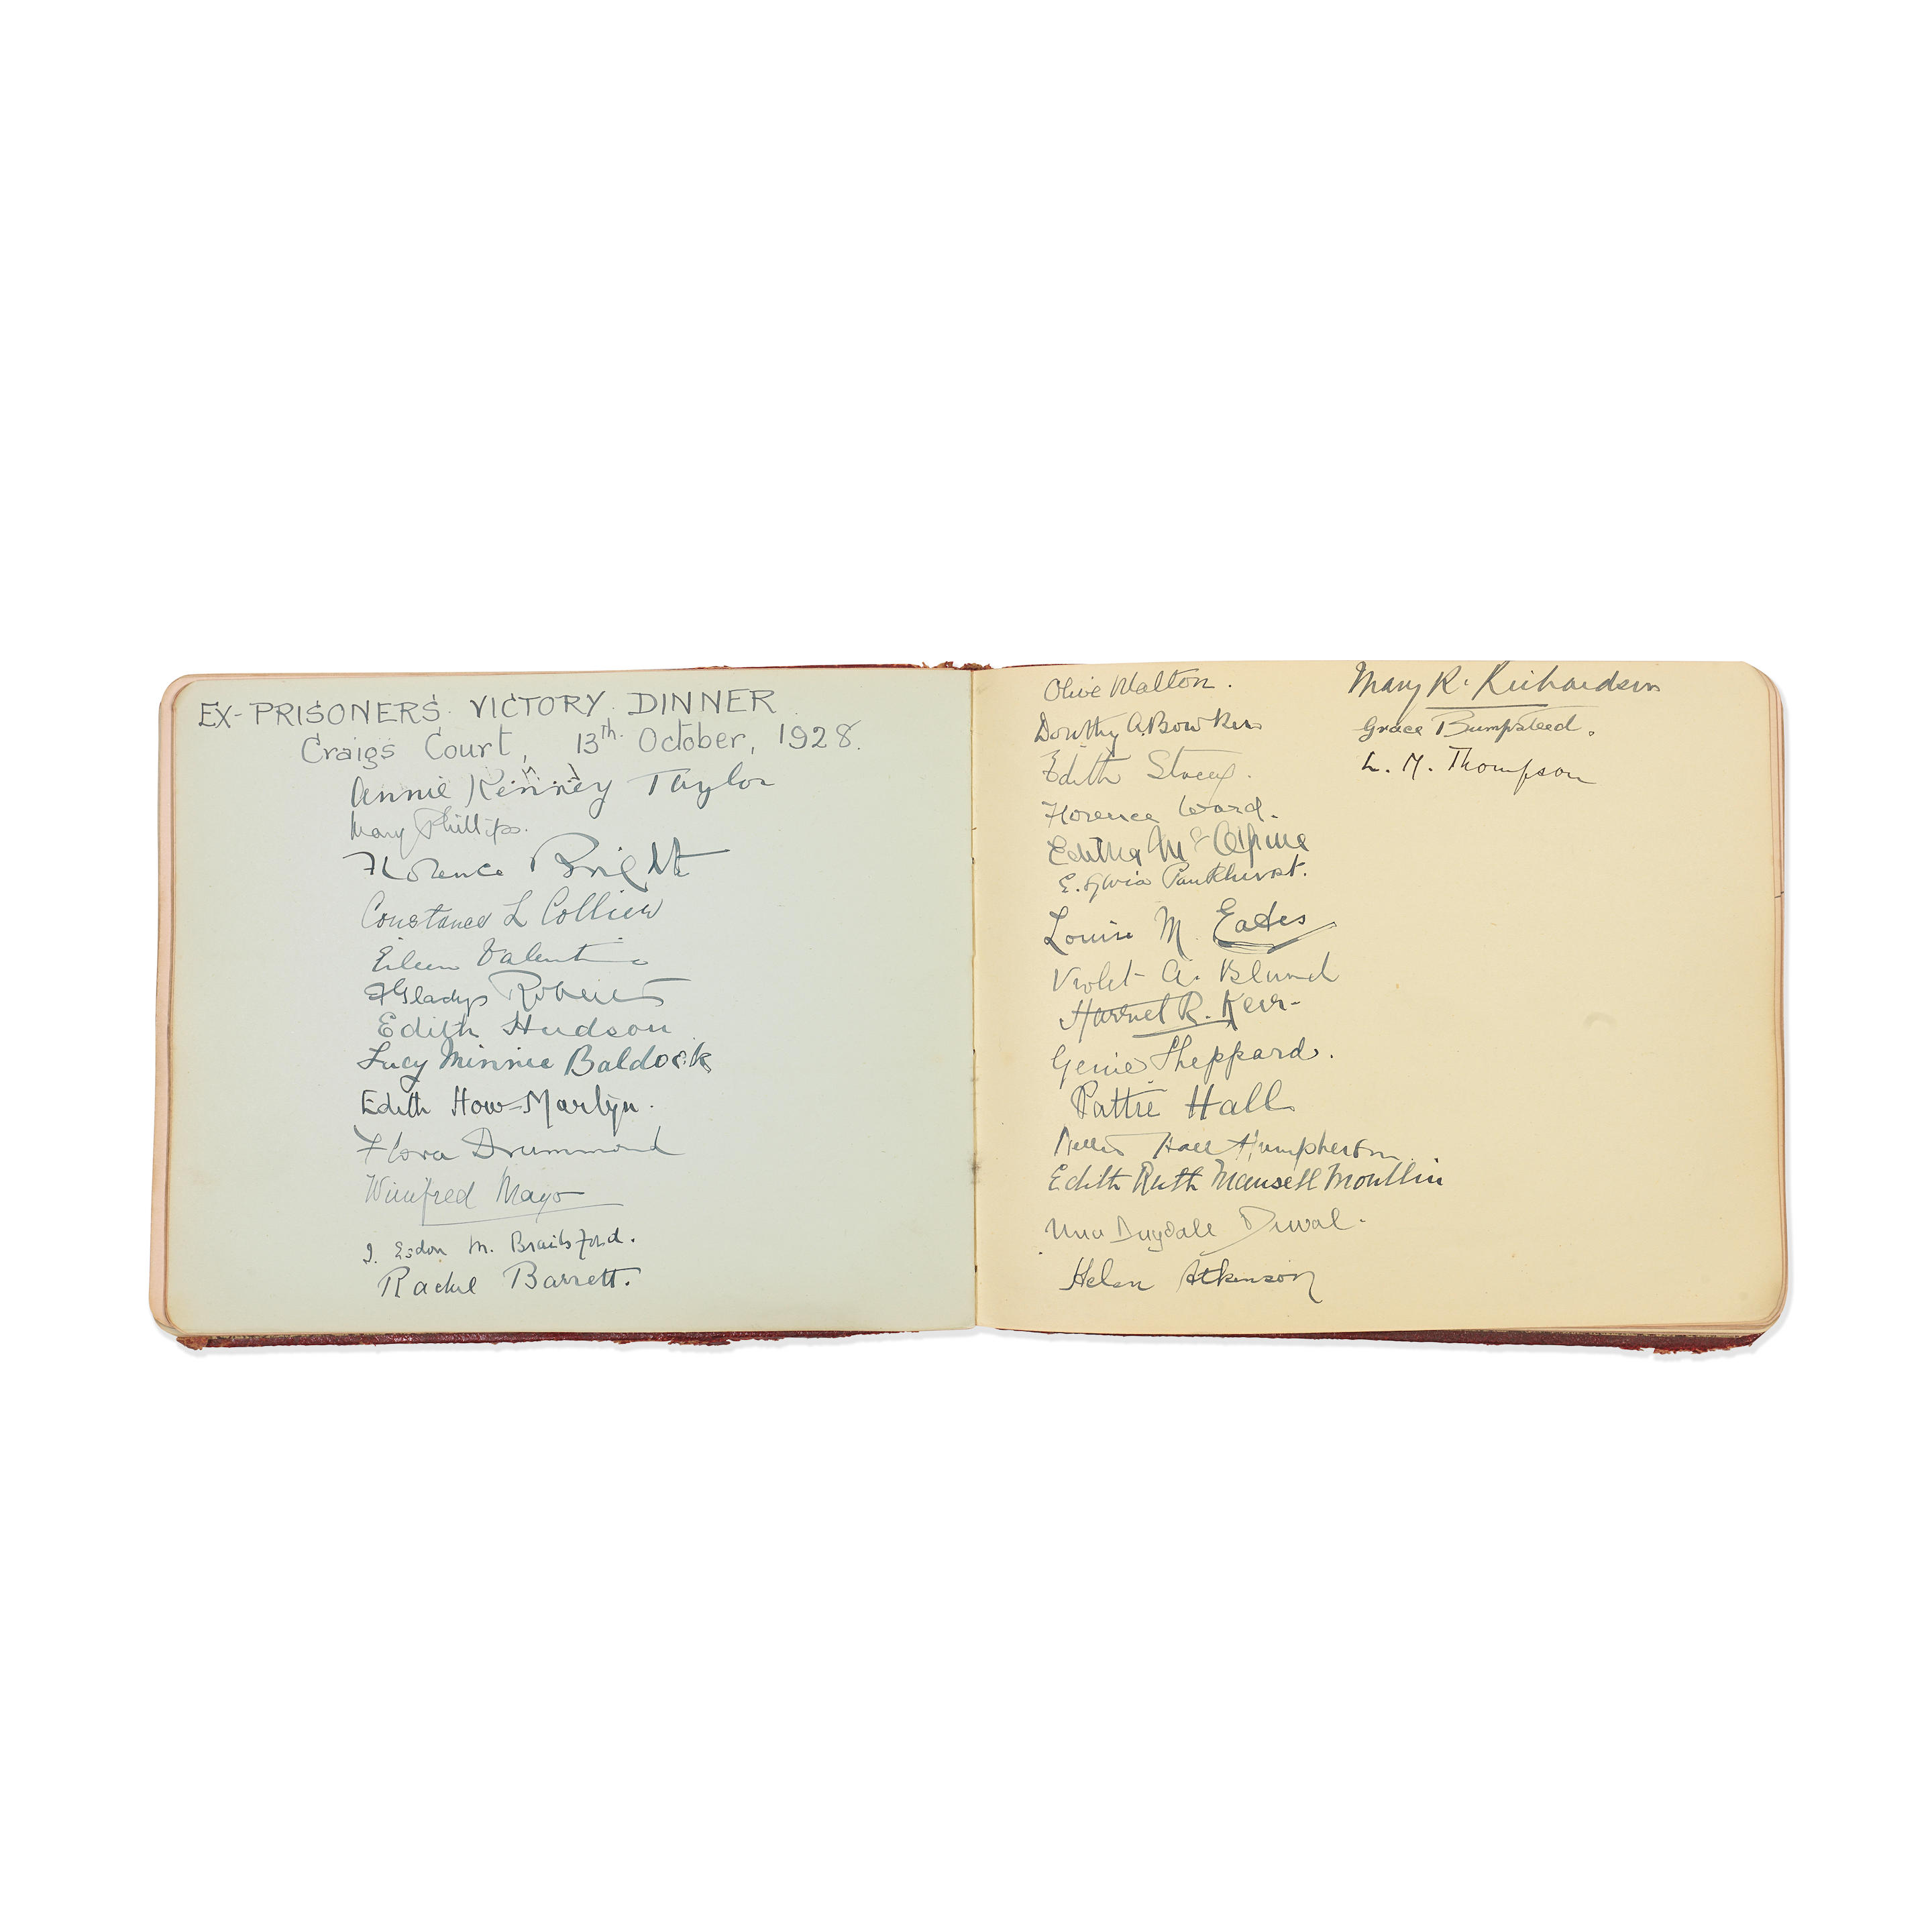 EX-PRISONERS VICTORY DINNER
Craigs Court, 13th October, 1928.
Annie Kenney Taylor
Mary Phillips.
Florence Bright
Constance L Collier
Eileen Valentine
F Gladys Roberts
Edith Hudson
Lucy Minnie Baldock
Edith How-Martyn.
Flora Drummond
Winifred Mayo
J. Esdon M. Brailsford.
Rachel Barrett.
Olive Walton.
Dorothy A. Bowker
Edith Stacey.
Florence Ward.
Editha McAlpine
E. Sylvia Pankhurst.
Louise M. Eates
Violet A. Blund
Harriet R. Kerr-
Genie Sheppard.
Pattie Hall
Nellie Hall Humpherson
Edith Ruth Mansell Moullin
Una Dugdale Duval.
Helen Atkinson
Mary R. Richardson
Grace Bumpsteed.
L. M. Thompson